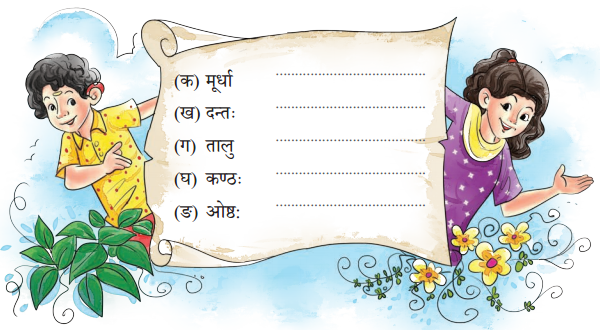 (क) मूर्धा ........................................
(ख) दन्तः ........................................
(ग) तालु ........................................
(घ) कण्ठः ........................................
(ङ) ओष्ठ: ........................................